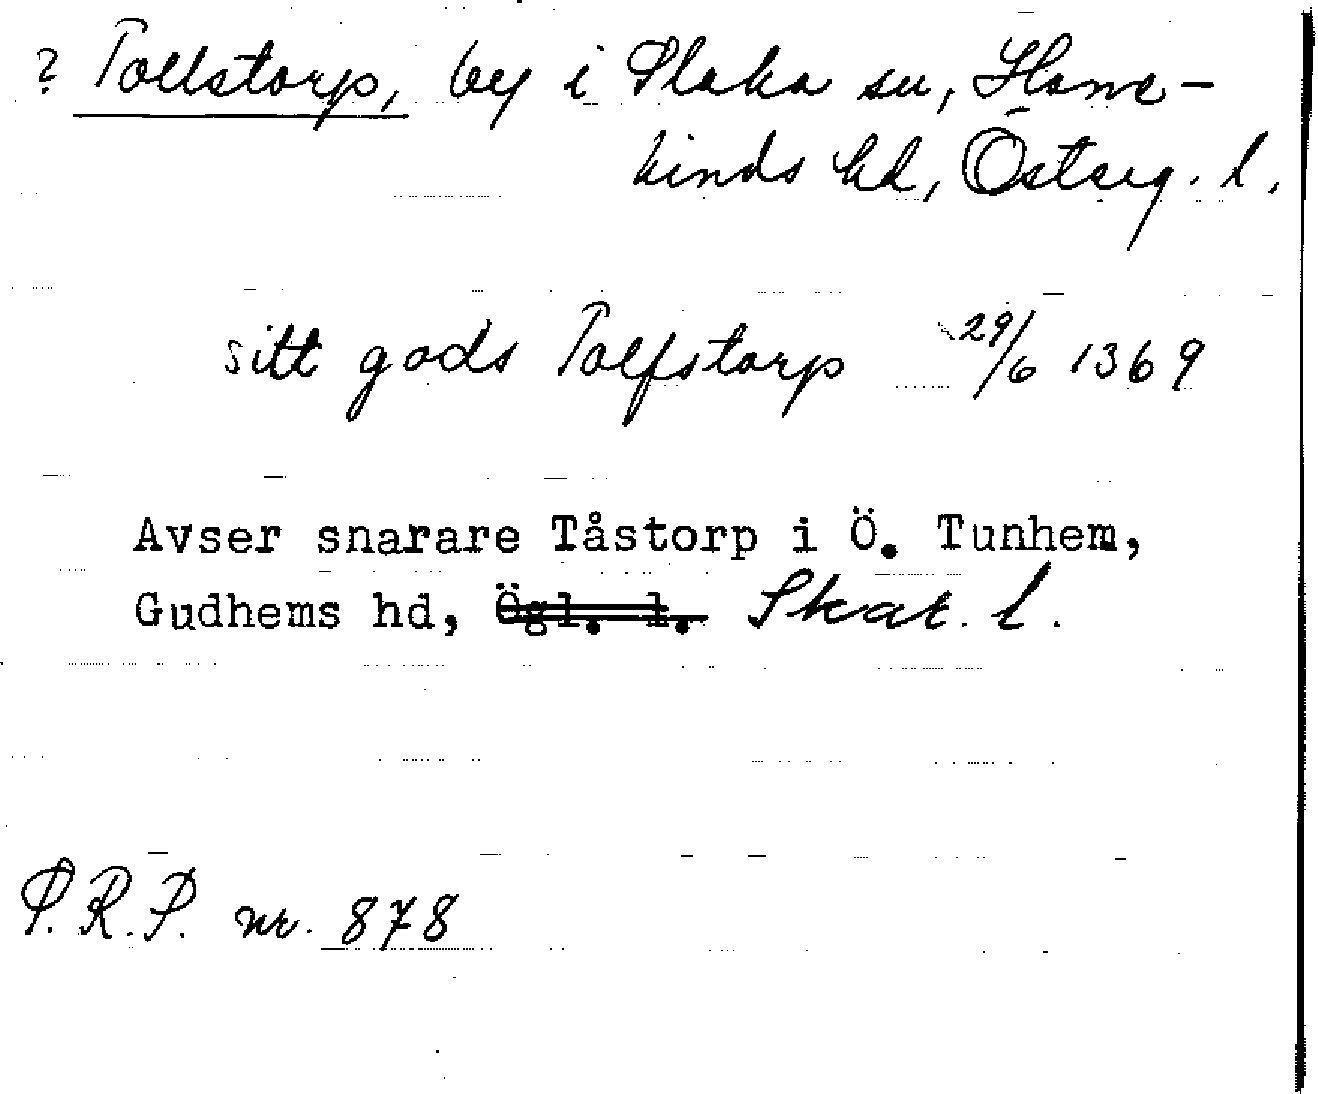 ? Tollstorp, by i Slaka sn, Hane-
kinds hd, Österg. l.
sitt gods Tolfstorp 29/6 1369
Avser snarare Tåstorp i Ö. Tunhem,
Gudhems hd, Ögl. l. Skar. l.
P.R.P. nr. 878